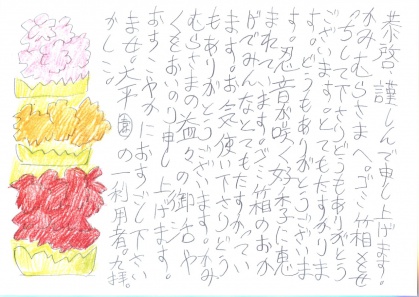 恭啓 謹しんで申し上げます。
かみむらさまへ。ゴミ箱をせ
っちして下さりどうもありがとう
ございます。とてもたすかりま
す。どうもありがとうございま
す。忍音が咲く好季に恵
まれています。ゴミ箱のおか
げでみんなとてもたすかってい
ます。お気使い下さりどう
もありがとうございます。かみ
むらさまの益々の御活や
くをおいのり申し上げます。
おすこやかにおすごし下さい
ませ。大平の一利用者。九拝。
かしこ。